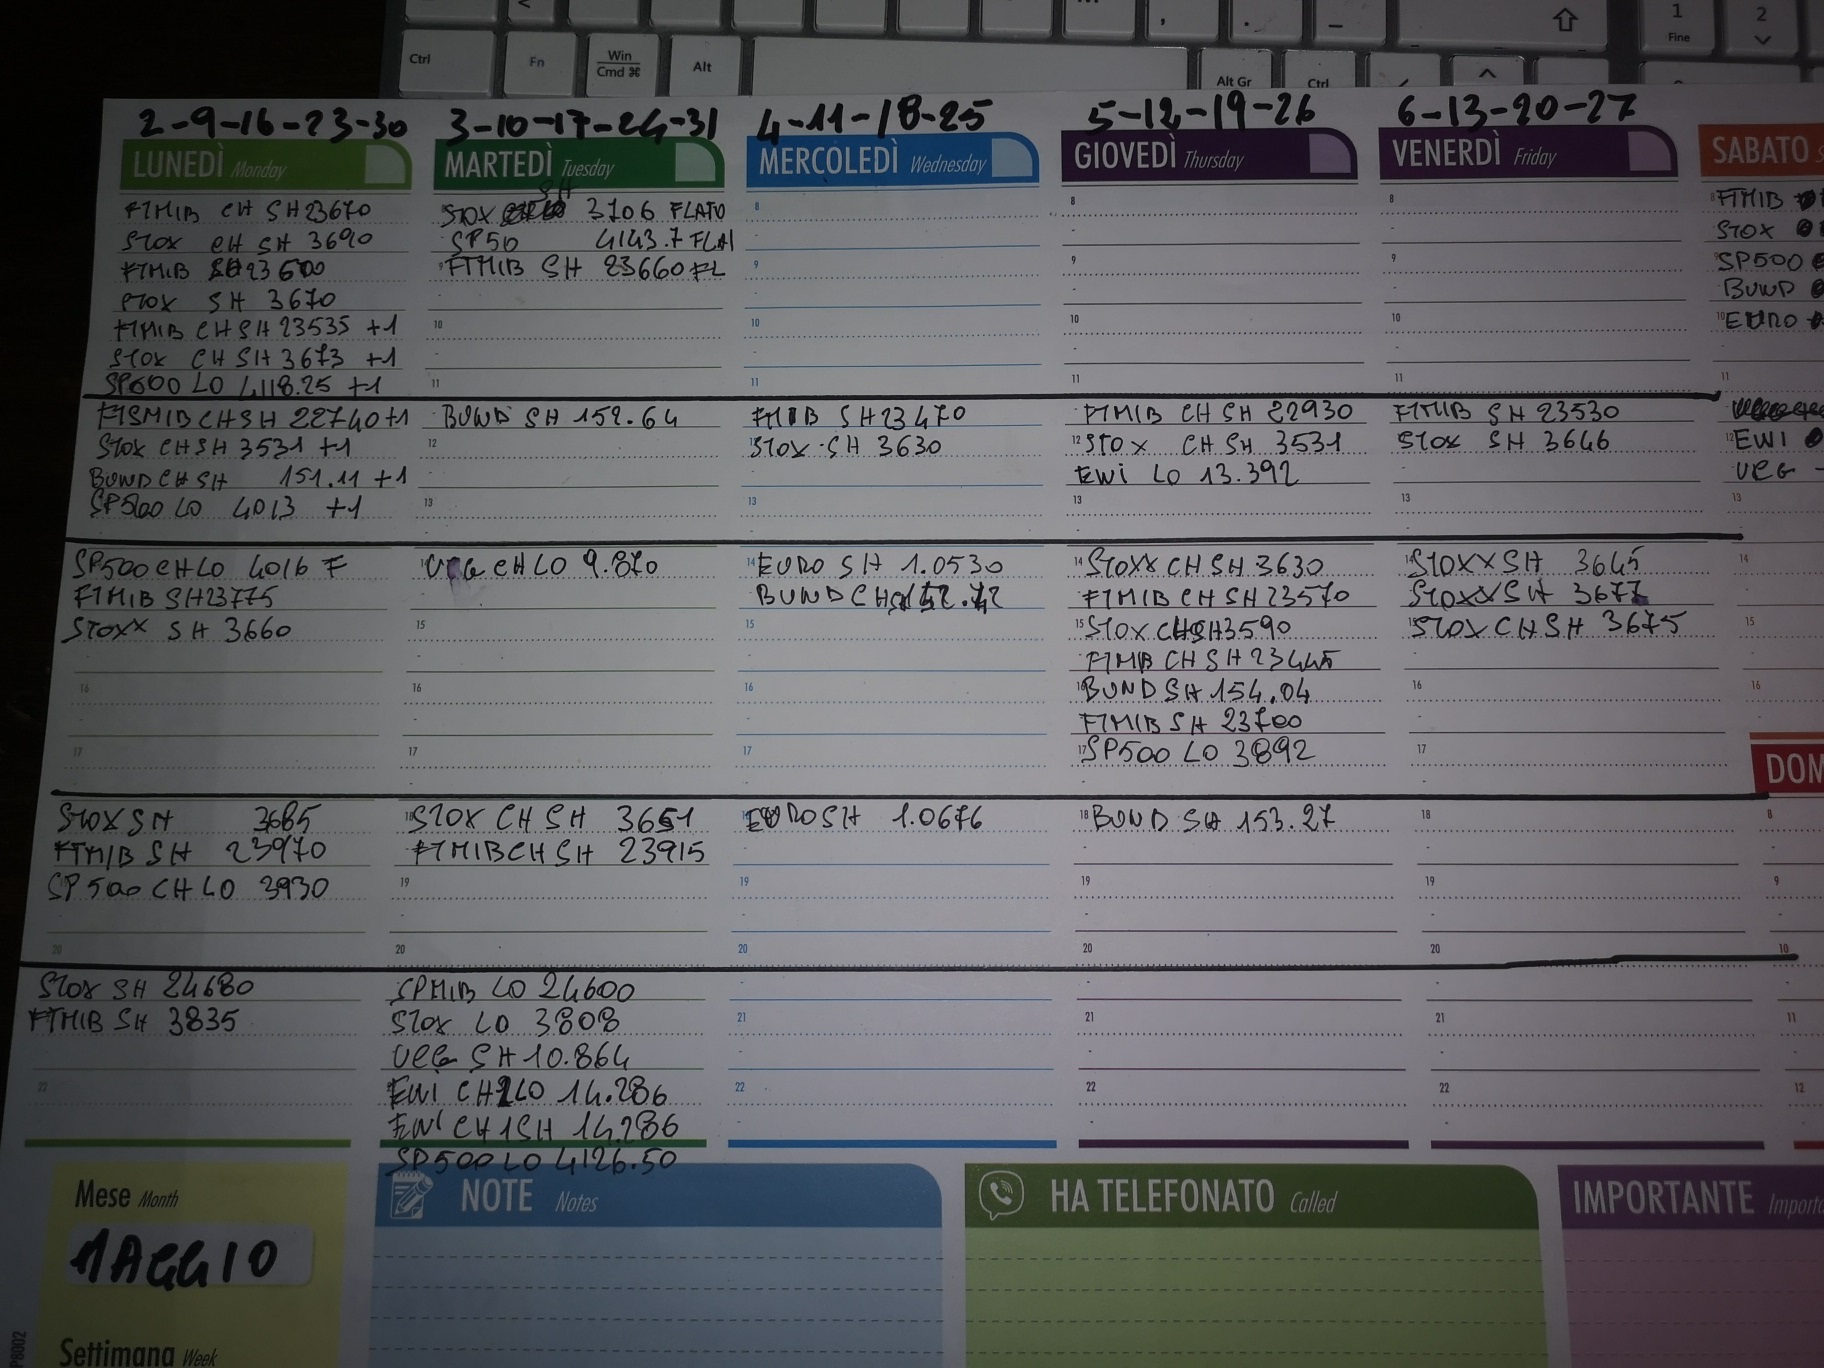 Ctrl
Fn
Win
Cmd ⌘
Alt
Alt Gr
Ctrl
1
Fine
2
2-9-16-23-30
3-10-17-24-31
4-11-18-25
5-12-19-26
6-13-20-27
LUNEDÌ Monday
MARTEDÌ Tuesday
MERCOLEDÌ Wednesday
GIOVEDÌ Thursday
VENERDÌ Friday
SABATO S
FTMIB CH SH 23670
STOX CH SH 3690
FTMIB SH 23600
STOX SH 3670
FTMIB CH SH 23535 +1
STOX CH SH 3673 +1
SP500 LO 4118.25 +1
SH
STOX 3706 FLATO
SP50 4143.7 FLA
FTMIB SH 23660 FL
FTMIB
STOX
SP500
BUND
EURO
FTSMIB CH SH 22740 +1
STOX CH SH 3531 +1
BUND CH SH 151.11 +1
SP500 LO 4013 +1
BUND SH 152.64
FTMIB SH 23470
STOX SH 3630
FTMIB CH SH 22930
STOX CH SH 3531
EWI LO 13.392
FTMIB SH 23530
STOX SH 3646
EWI
UCG
SP500 CH LO 4016 F
FTMIB SH 23775
STOXX SH 3660
UCG CH LO 9.870
EURO SH 1.0530
BUND CH SH
STOXX CH SH 3630
FTMIB CH SH 23570
STOX CH SH 3590
FTMIB CH SH 23445
BUND SH 154.04
FTMIB SH 23700
SP500 LO 3892
STOXX SH 3645
STOXX SH 3677
STOX CH SH 3675
DOM
STOX SH 3685
FTMIB SH 23970
SP500 CH LO 3930
STOX CH SH 3651
FTMIB CH SH 23915
EURO SH 1.0676
BUND SH 153.27
STOX SH 24680
FTMIB SH 3835
SPMIB LO 24600
STOX LO 3808
UCG SH 10.864
EWI CH 1 LO 14.286
EWI CH 1 SH 14.286
SP500 LO 4126.50
Mese Month
MAGGIO
Settimana Week
NOTE Notes
HA TELEFONATO Called
IMPORTANTE Importa